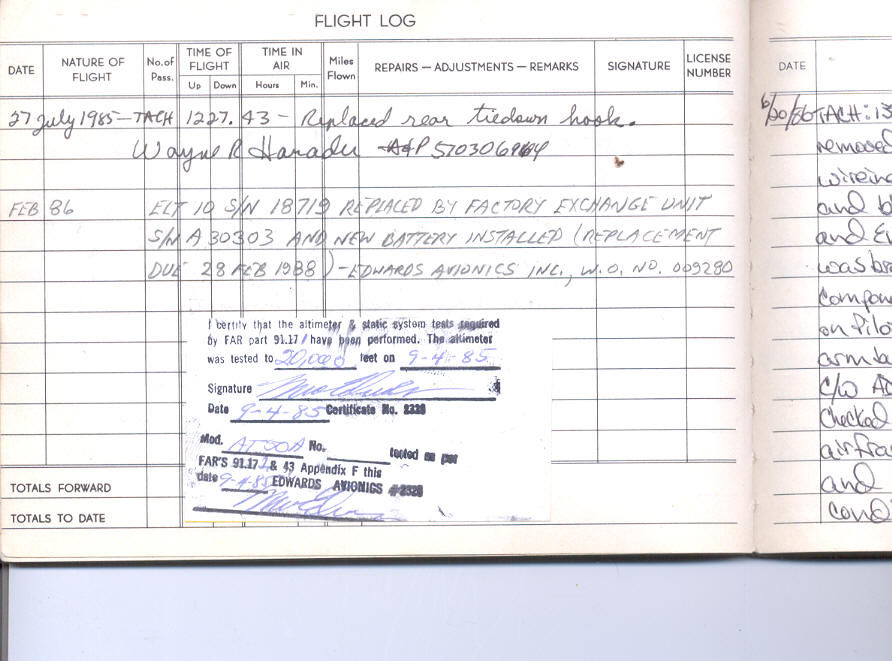 FLIGHT LOG
DATE
NATURE OF FLIGHT
No. of Pass.
TIME OF FLIGHT
Up Down
TIME IN AIR
Hours Min.
Miles Flown
REPAIRS — ADJUSTMENTS — REMARKS
SIGNATURE
LICENSE NUMBER
27 July 1985 — TACH 1227.43 — Replaced rear tiedown hook.
Wayne R A&P
FEB 86 ELT 10 S/N 18719 REPLACED BY FACTORY EXCHANGE UNIT
S/N A30303 AND NEW BATTERY INSTALLED (REPLACEMENT
DUE 28 FEB 1988) — EDWARDS AVIONICS INC., W.O. NO. 009280
I certify that the altimeter & static system tests required
by FAR part 91.17 have been performed. The altimeter
was tested to 20,000 feet on 9-4-85
Signature
Date 9-4-85 Certificate No.
Mod. AT50A No. tested as per
FAR'S 91.17 & 43 Appendix F this
date 9-4-85 EDWARDS AVIONICS
TOTALS FORWARD
TOTALS TO DATE
DATE
TACH:
removed
wireing
and
and
was
on Pilo
C/W AD
checked
airfra
and
cond